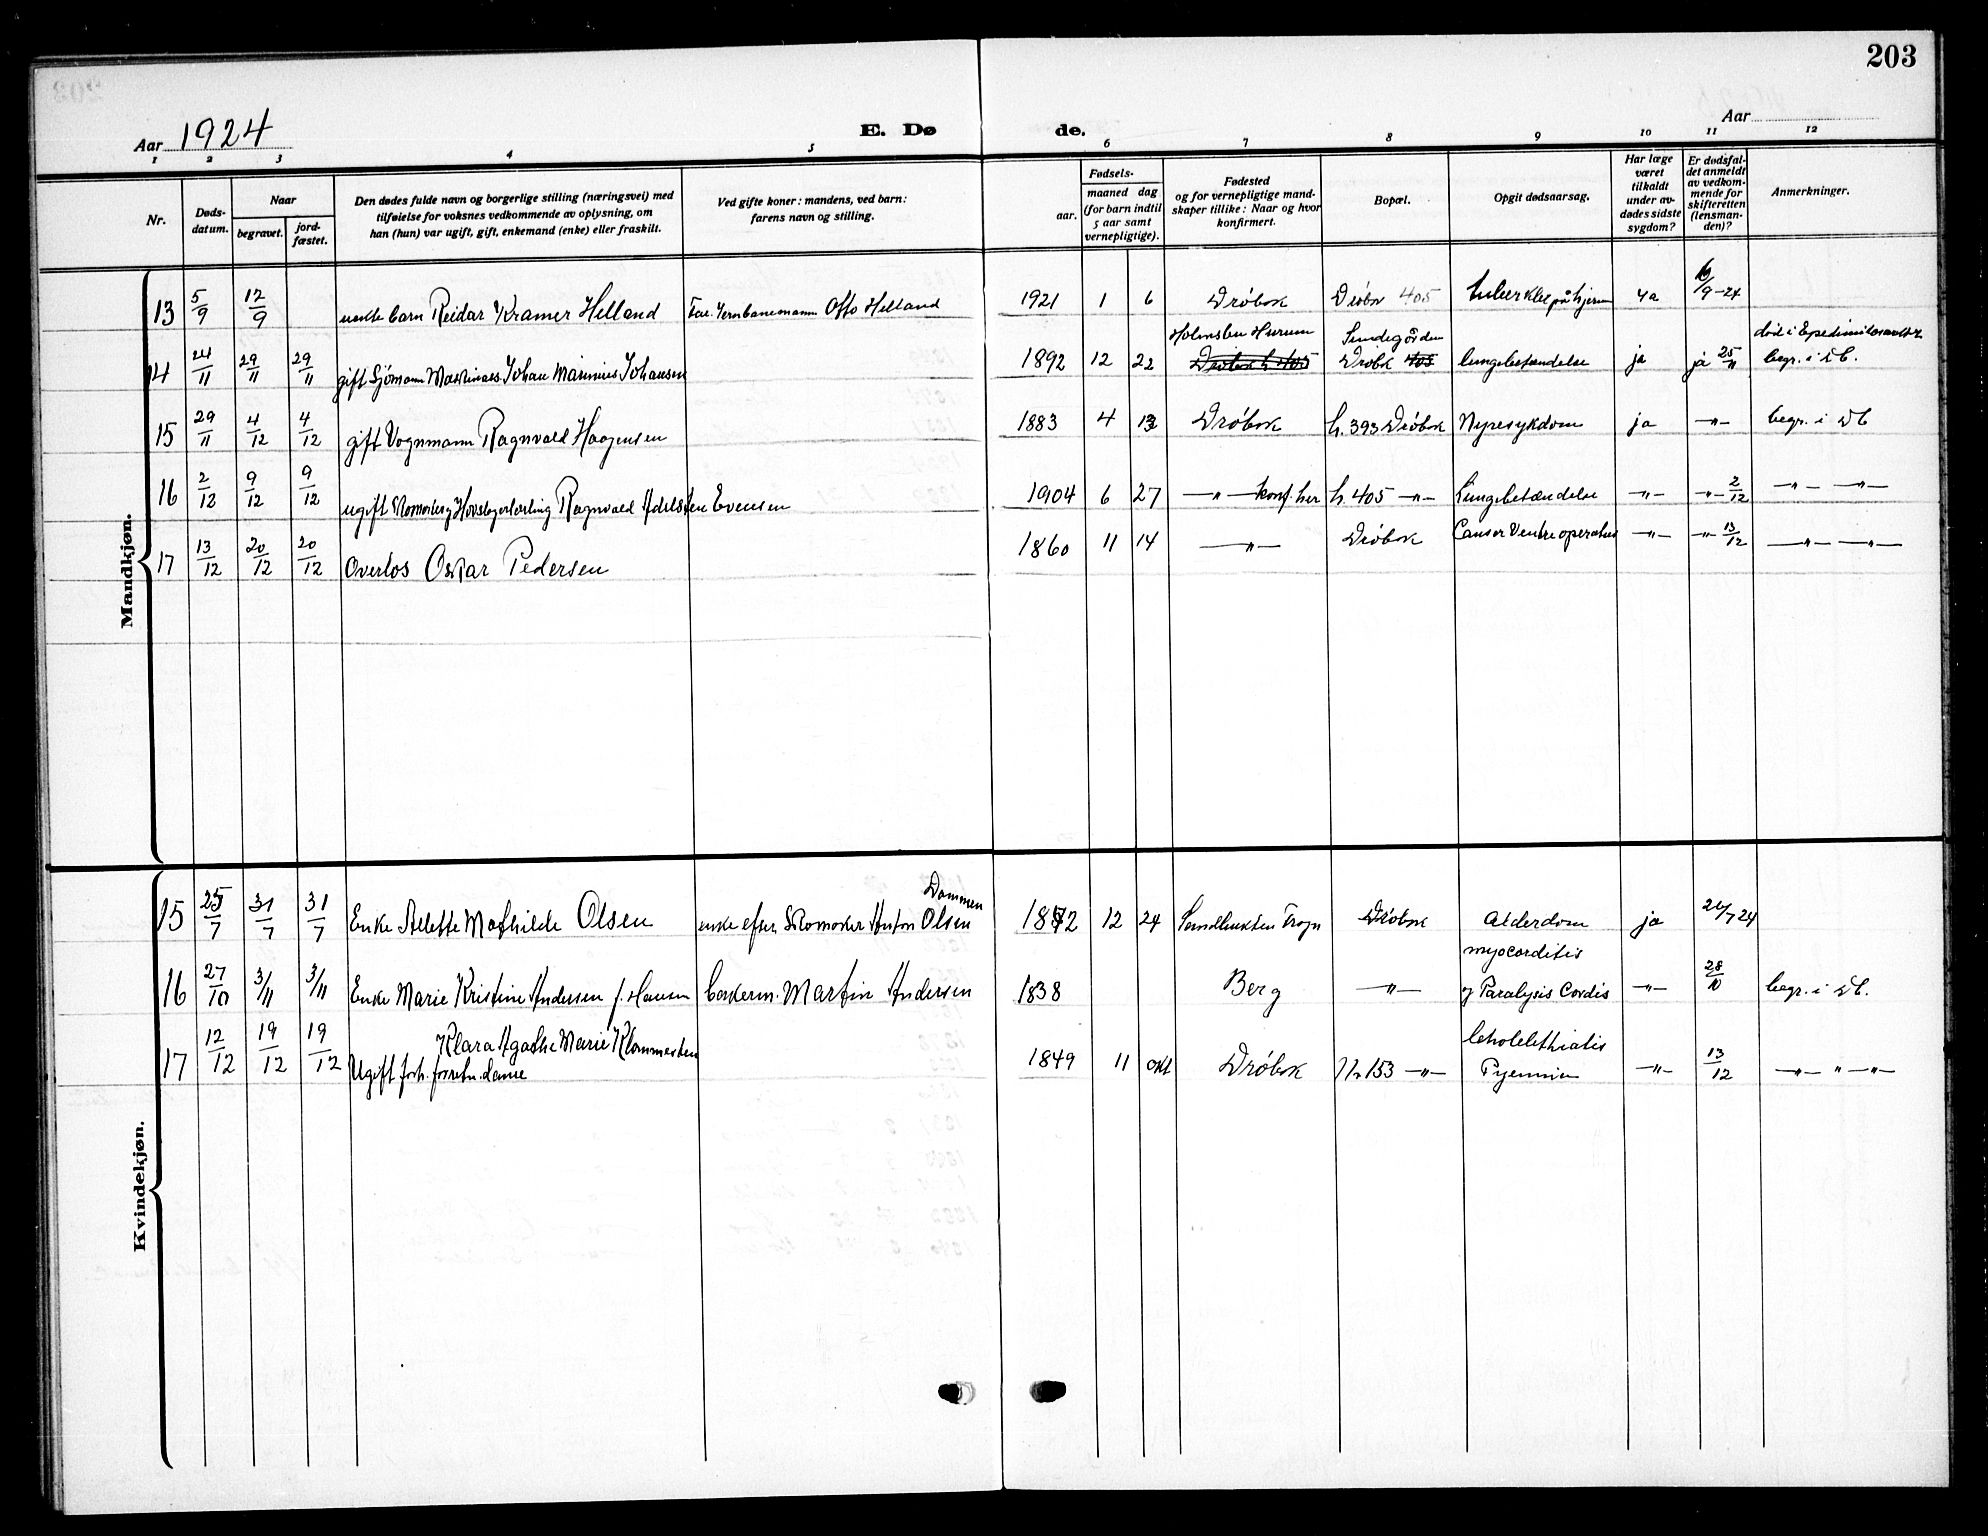 203
Aar 1924
E. Døde.
Aar
1 2 3 4 5 6 7 8 9 10 11 12
Nr.
Døds-datum.
Naar
begravet.
jord-fæstet.
Den dødes fulde navn og borgerlige stilling (næringsvei) med
tilføielse for voksnes vedkommende av oplysning, om
han (hun) var ugift, gift, enkemand (enke) eller fraskilt.
Ved gifte koner: mandens, ved barn:
farens navn og stilling.
Fødsels-
aar.
maaned dag
(for barn indtil
5 aar samt
vernepligtige).
Fødested
og for vernepligtige mand-
skaper tillike: Naar og hvor
konfirmert.
Bopæl.
Opgit dødsaarsag.
Har læge
været
tilkaldt
under av-
dødes sidste
sygdom?
Er dødsfal-
det anmeldt
av vedkom-
mende for
skifteretten
(lensman-
den)?
Anmerkninger.
Mandkjøn.
13 5/9 12/9 ægte barn Reidar Kramer Helland Far. Jernbanemann Otto Helland 1921 1 6 Drøbak Drøbak 405 på hjernen ja /9-24
14 24/11 29/11 29/11 gift Sjømann Johan Marinius Johansen 1892 12 22 Holmsbu Hurum Drøbak lungebetændelse ja ja 25/11 begr. i Db.
15 29/11 4/12 4/12 gift Vognmann Ragnvald Haagensen 1883 4 Drøbak h. 393 Drøbak Nyresykdom ja —"— begr. i Db
16 2/12 9/12 9/12 ugift Ragnvald Adelsten Evensen 1904 6 27 —"— konf. her h. 405 —"— Lungebetændelse —"— —"— 2/12 —"— —"—
17 13/12 20/12 20/12 Overlos Oskar Pedersen 1860 11 14 —"— Drøbak Cancer Ventre operatus —"— —"— 13/12 —"— —"—
Kvindekjøn.
15 25/7 31/7 31/7 Enke Alette Mathilde Olsen enke efter Skomaker Anton Olsen Dammen 12 24 Sandbukten Frogn Drøbak Alderdom ja
16 27/10 3/11 3/11 Enke Marie Kristine Andersen f. Hansen Martin Andersen 1838 Berg —"— myocorditis og Paralysis Cordis —"— 28/10 begr. i Db.
17 12/12 19/12 19/12 Klara Agathe Marie Klommesten
Ugift forh. forretn. dame 1849 11 Drøbak Nr 153 —"— —"— 13/12 —"— " —"—